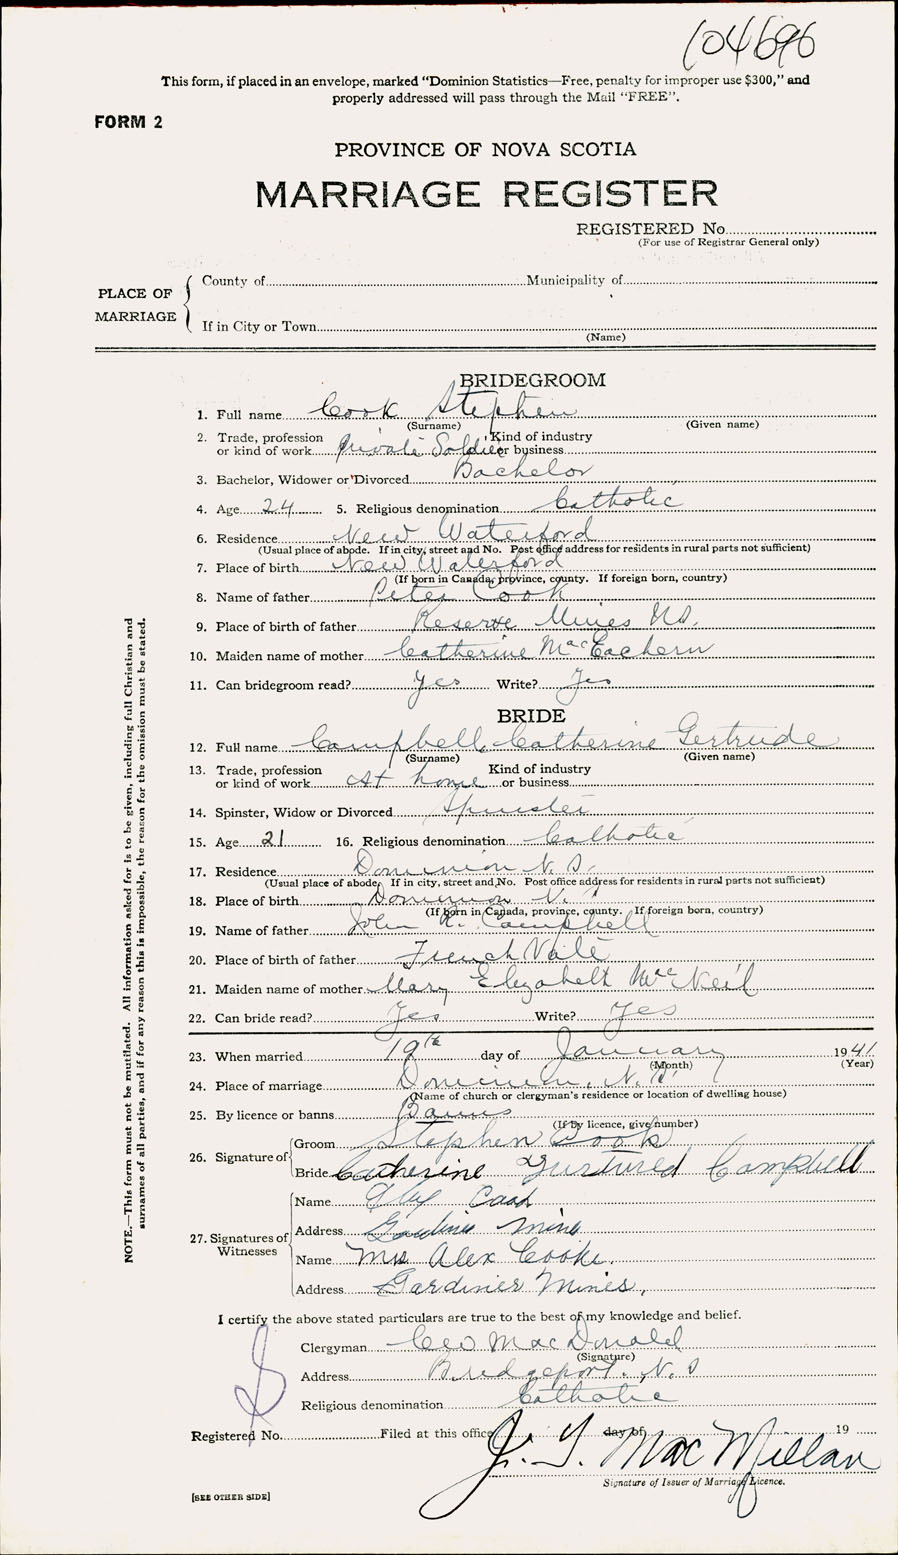 104696
This form, if placed in an envelope, marked “Dominion Statistics—Free, penalty for improper use $300,” and
properly addressed will pass through the Mail “FREE”.
FORM 2
PROVINCE OF NOVA SCOTIA
MARRIAGE REGISTER
REGISTERED No
(For use of Registrar General only)
PLACE OF MARRIAGE
County of Municipality of
If in City or Town
(Name)
BRIDEGROOM
1. Full name Cook Stephen
(Surname) (Given name)
2. Trade, profession or kind of work Private Soldier Kind of industry or business
3. Bachelor, Widower or Divorced Bachelor
4. Age 24 5. Religious denomination Catholic
6. Residence New Waterford
(Usual place of abode. If in city, street and No. Post office address for residents in rural parts not sufficient)
7. Place of birth New Waterford
(If born in Canada, province, county. If foreign born, country)
8. Name of father Peter Cook
9. Place of birth of father Reserve Mines NS.
10. Maiden name of mother Catherine MacEachern
11. Can bridegroom read? Yes Write? Yes
BRIDE
12. Full name Campbell, Catherine Gertrude
(Surname) (Given name)
13. Trade, profession or kind of work At home Kind of industry or business
14. Spinster, Widow or Divorced Spinster
15. Age 21 16. Religious denomination Catholic
17. Residence Dominion N. S.
(Usual place of abode. If in city, street and No. Post office address for residents in rural parts not sufficient)
18. Place of birth Dominion N. S
(If born in Canada, province, county. If foreign born, country)
19. Name of father John R. Campbell
20. Place of birth of father French Vale
21. Maiden name of mother Mary Elizabeth MacNeil
22. Can bride read? Yes Write? Yes
23. When married 19th day of January 1941
(Month) (Year)
24. Place of marriage Dominion, N. S.
(Name of church or clergyman's residence or location of dwelling house)
25. By licence or banns Banns
(If by licence, give number)
26. Signature of
Groom Stephen Cook
Bride Catherine Campbell
27. Signatures of Witnesses
Name
Address Gardiner Mines
Name Mrs Alex Cooke.
Address Gardiner Mines,
I certify the above stated particulars are true to the best of my knowledge and belief.
Clergyman MacDonald
(Signature)
Address Bridgeport. N. S
Religious denomination Catholic
Registered No. Filed at this office day of 19
MacMillan
Signature of Issuer of Marriage Licence.
[SEE OTHER SIDE]
NOTE.—This form must not be mutilated. All information asked for is to be given, including full Christian and
surnames of all parties, and if for any reason this is impossible, the reason for the omission must be stated.